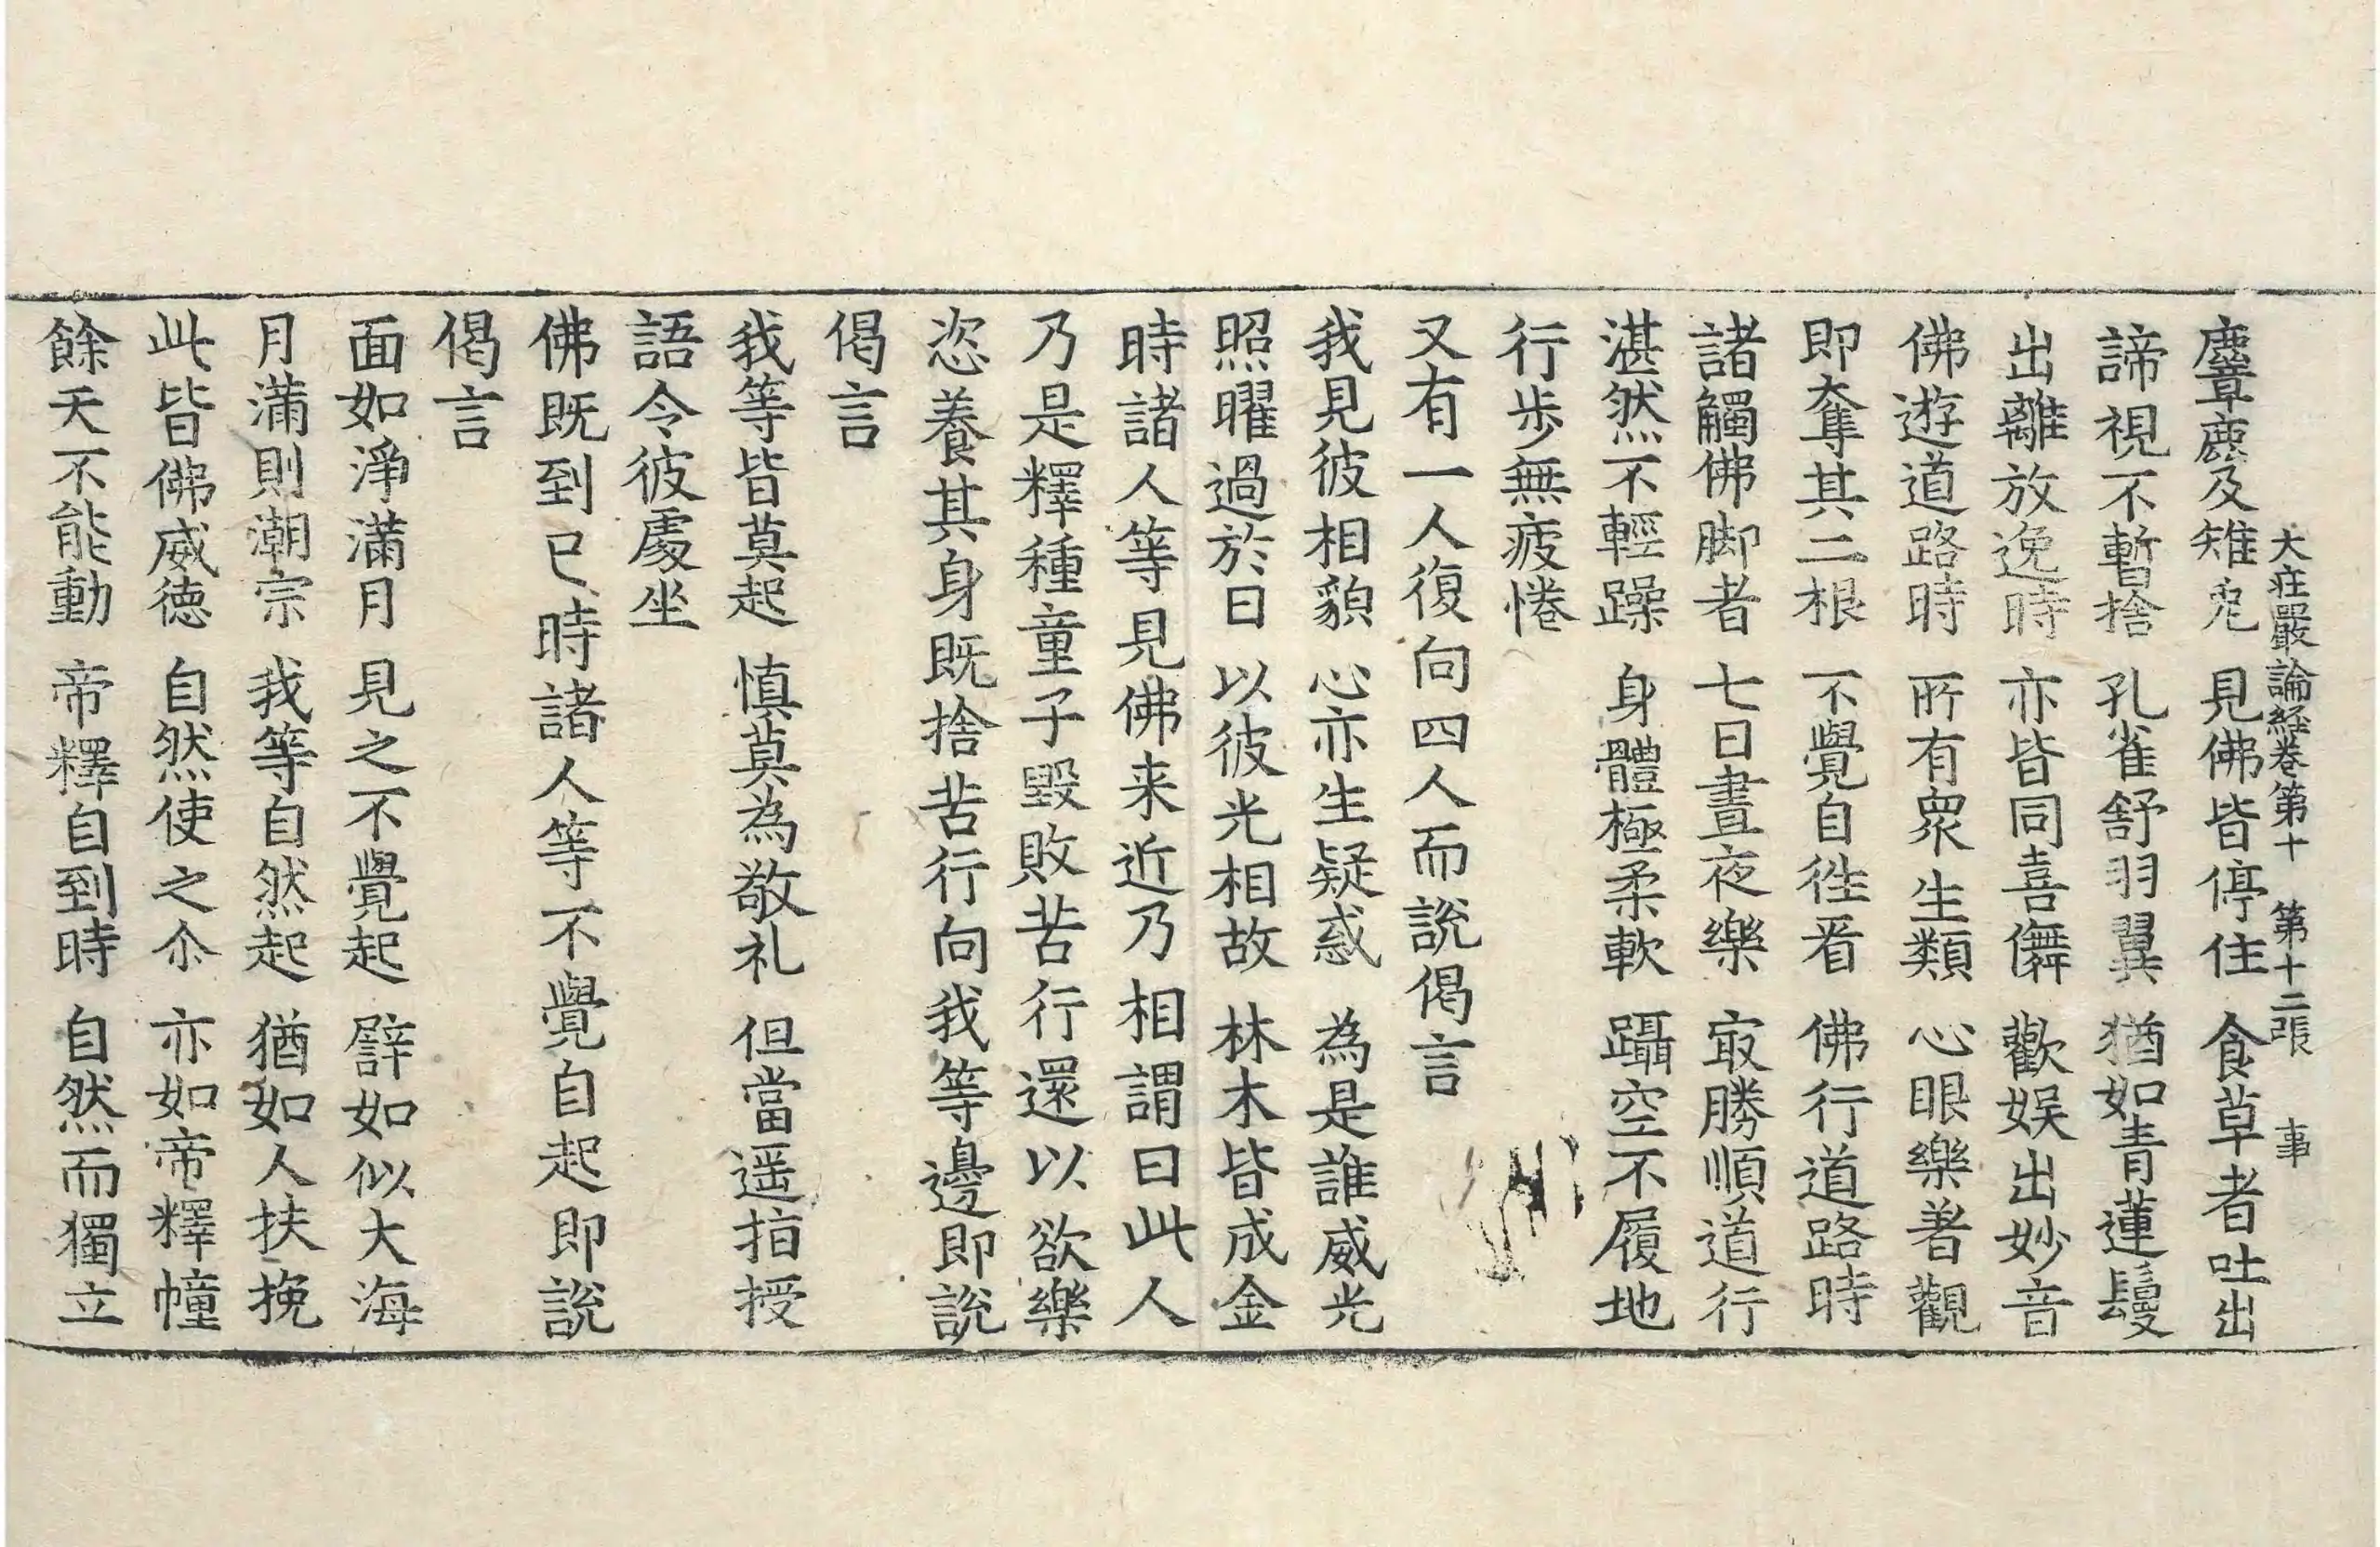 大莊嚴論經卷第十　第十二張　事
麞鹿及雉兎　見佛皆停住　食草者吐出
諦視不暫捨　孔雀舒羽翼　猶如青蓮鬘
出離放逸時　亦皆同喜儛　歡娱出妙音
佛遊道路時　所有衆生類　心眼樂著觀
即奪其二根　不覺自往看　佛行道路時
諸觸佛脚者　七日晝夜樂　㝡勝順道行
湛然不輕躁　身體極柔軟　躡空不履地
行步無疲惓
又有一人復向四人而說偈言
我見彼相貌　心亦生疑惑　為是誰威光
照曜過於日　以彼光相故　林木皆成金
時諸人等見佛来近乃相謂曰此人
乃是釋種童子毀敗苦行還以欲樂
恣養其身既捨苦行向我等邊即說
偈言
我等皆莫起　慎莫為敬礼　但當遥指授
語令彼處坐
佛既到已時諸人等不覺自起即說
偈言
面如淨滿月　見之不覺起　譬如似大海
月滿則潮宗　我等自然起　猶如人扶挽
此皆佛威德　自然使之尒　亦如帝釋幢
餘天不能動　帝釋自到時　自然而獨立